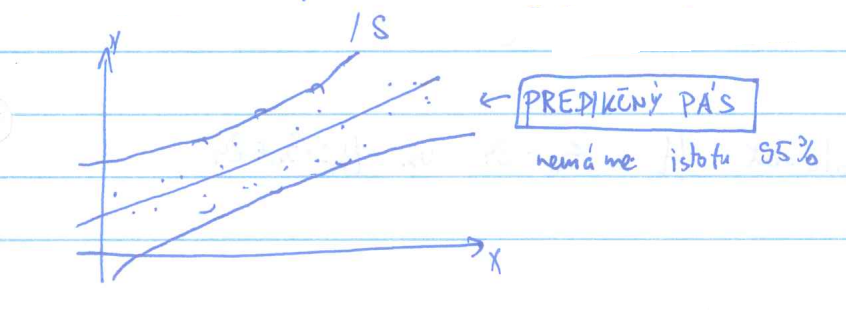 IS
Y
PREDIKČNÝ PÁS
nemáme istotu 95%
X